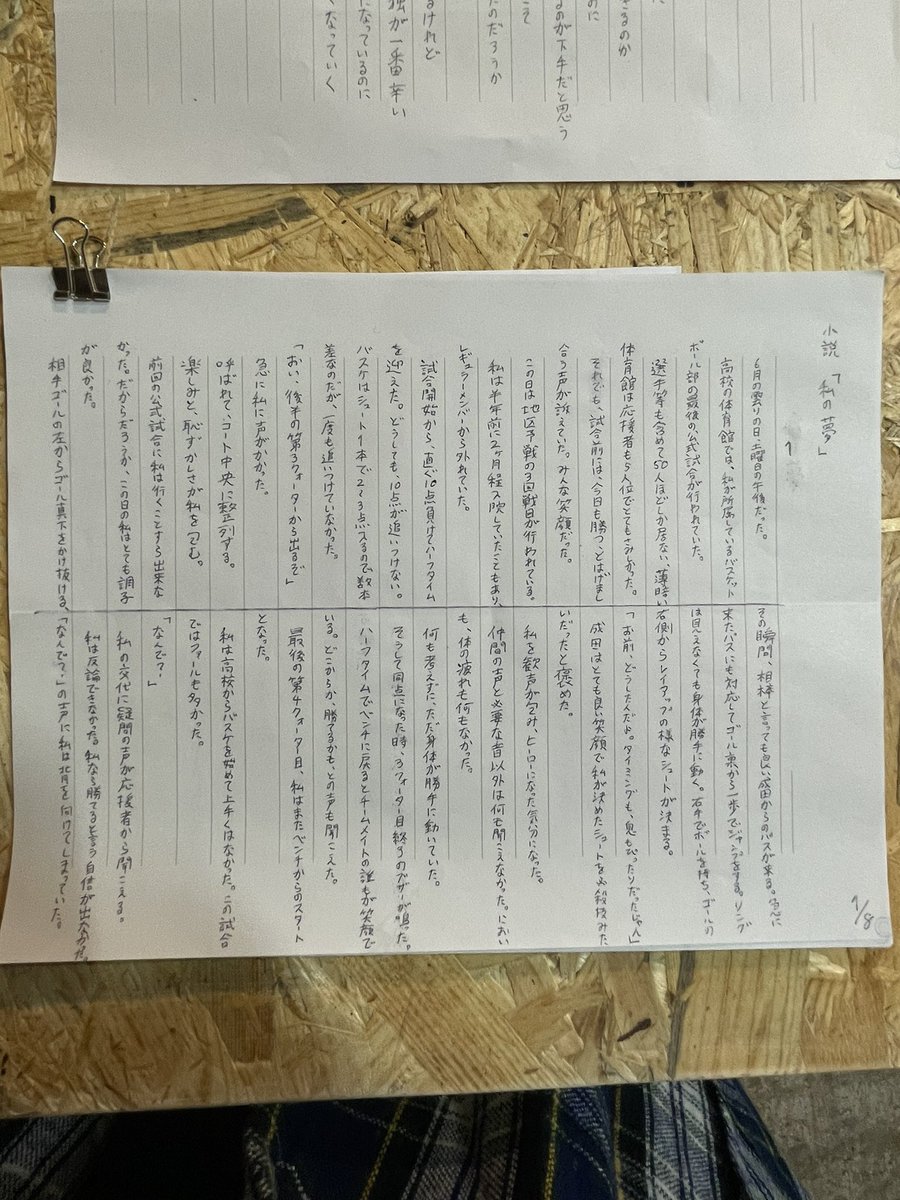 きるのか
のに
るのが下手だと思う
こて
たのだろうか
るけれど
独が一番辛い
になっているのに
くなっていく
1/8
小説「私の夢」
1
6月の曇りの日、土曜日の午後だった。
高校の体育館では、私が所属しているバスケット
ボール部の最後の公式試合が行われていた。
選手等も含めて50人ほどしか居ない、薄暗い
体育館は応援者も5人位でとてもさみかった。
それでも、試合前は、今日も勝つことはげまし
合う声が訴えていた。みんな笑顔だった。
この日は地区予戦の3回戦目が行われている。
私は半年前に2ヶ月程入院していたこともあり、
レギュラーメンバーから外れていた。
試合開始から、直ぐ10点負けてハーフタイム
を迎えた。どうしても、10点が追いつけない。
バスケはシュート1本で2〜3点入るので数本
差なのだが一度も追いつけていなかった。
「おい、後半の第3クォーターから出るぞ」
急に私に声がかかった。
呼ばれて、コート中央に整列する。
楽しみと、恥ずかしさが私を包む。
前回の公式試合に私は行くことすら出来な
かった。だからだろうか、この日の私はとても調子
が良かった。
相手ゴールの左からゴール真下をかけ抜ける、
その瞬間、相棒と言っても良い成田からのパスが来る。急に
来たパスにも対応してゴール裏から一歩でジャンプをする。リング
は見えなくても身体が勝手に動く。右手でボールを持ち、ゴールの
右側からレイアップの様なシュートが決まる。
「お前、どうしたんだよ。タイミングも、息もぴったりだったじゃん」
成田はとても良い笑顔で私が決めたシュートを必殺技みた
いだったと褒めた。
私を歓声が包み、ヒーローになった気分になった。
仲間の声と必要な音以外は何も聞こえなかった。におい
も、体の疲れも何もなかった。
何も考えずに、ただ身体が勝手に動いていた。
そうして同点になった時、3クォーター目終りのブザーが鳴った。
ハーフタイムでベンチに戻るとチームメイトの誰もが笑顔で
いる。どこからか、勝てるかも、との声も聞こえた。
最後の第4クォーター目、私はまたベンチからのスタート
となった。
私は高校からバスケを始めて上手くはなかった。この試合
ではファールも多かった。
「なんで？」
私の交代に疑問の声が応援者から聞こえる。
私は反論できなかった。私なら勝てると言う自信が出なかった。
「なんで？」の声に私は背を向けてしまっていた。